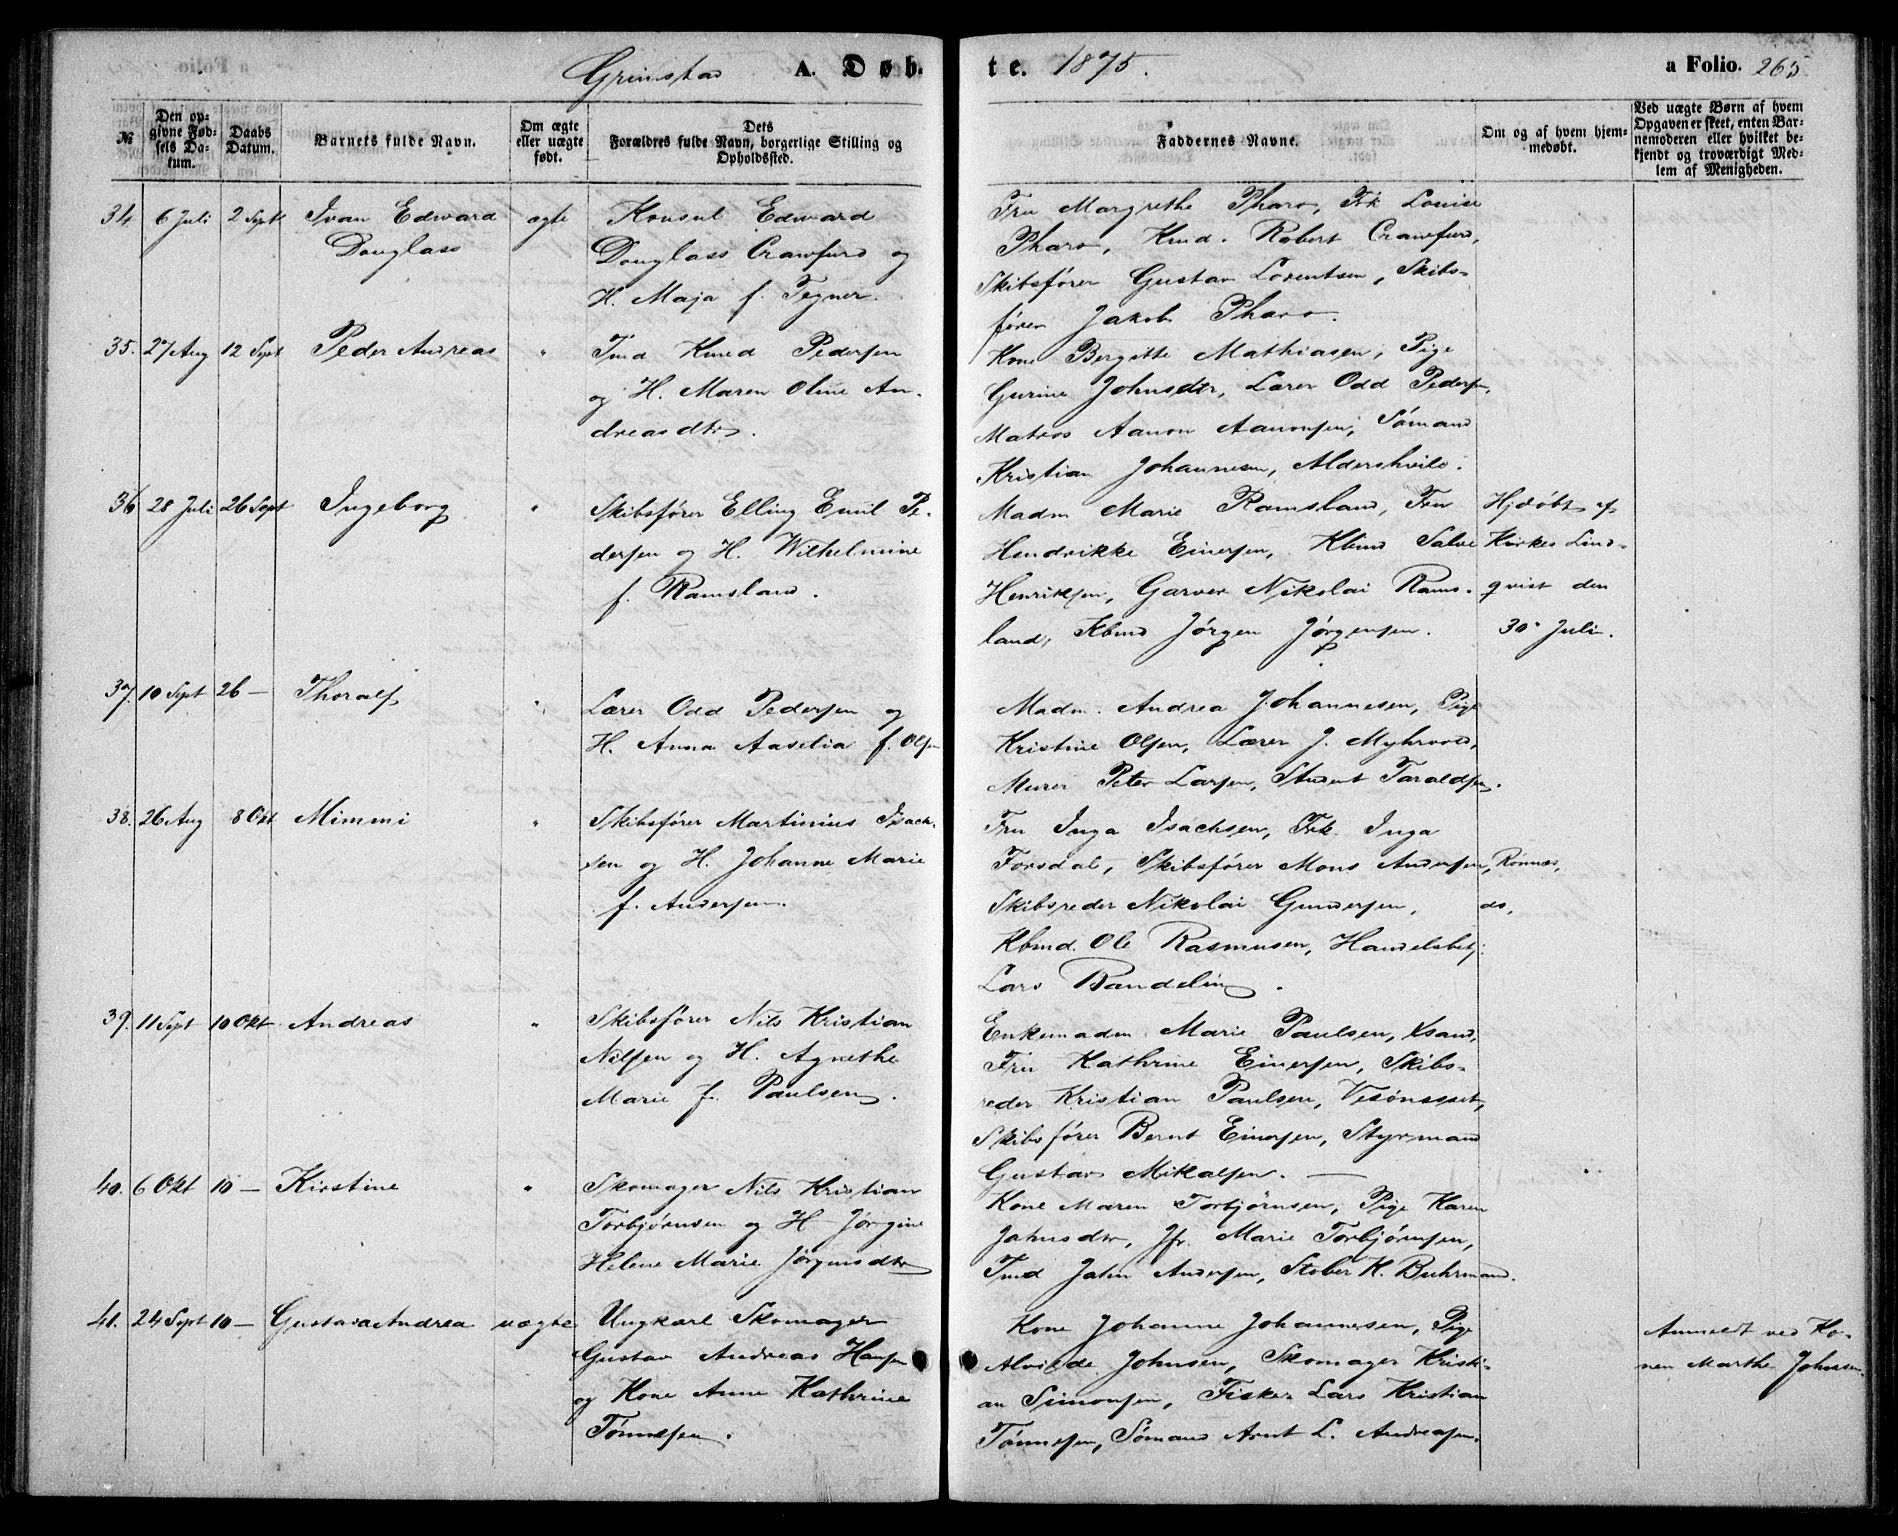 Grimstad A. Døb- te. 1875. a Folio. 265
№
Den opgivne Fødsels Datum.
Daabs Datum.
Barnets fulde Navn.
Om ægte eller uægte født.
Dets Forældres fulde Navn, borgerlige Stilling og Opholdssted.
Faddernes Navne.
Om og af hvem hjemmedøbt.
Ved uægte Børn af hvem Opgaven er skeet, enten Barnemoderen eller hvilket bekjendt og troværdigt Medlem af Menigheden.
34. 6 Juli 2 Sept Ivan Edward Douglass ægte
Konsul Edward
Douglass Crawfurd og
H. Maja f. Tegner.
Fru Margrethe Pharo, Frk Louise
Pharo, Kmd. Robert Crawfurd,
Skibsfører Gustav Lorentsen, Skibs-
fører Jakob Pharo.
35. 27 Aug 12 Sept Peder Andreas "
Tmd Knud Pedersen
og H. Maren Oline An-
dreasdtr.
Kone Bergitte Mathiasen, Pige
Gurine Johnsdtr, Lærer Odd Pedersen,
Matros Aanon Aanonsen, Sømand
Kristian Johannesen, Aldershvile.
36 28 Juli 26 Sept Ingeborg "
Skibsfører Elling Emil Pe-
dersen og H. Wilhelmine
f. Ramsland.
Madm Marie Ramsland, Fru
Hendrikke Einersen, Kbmd Salve
Henriksen, Garver Nikolai Rams-
land, Kbmd Jørgen Jørgensen.
Hjdøbt af
Kirkes Lind-
qvist den
30. Juli.
37. 10 Sept 26 — Thoralf "
Lærer Odd Pedersen og
H. Anna Aaselia f. Olsen
Madm. Andrea Johannesen, Pige
Kristine Olsen, Lærer J. Myhrvold,
Murer Peter Larsen, Student Taraldsen.
38. 26 Aug 8 Okt Mimmi "
Skibsfører Martinius Isach-
sen og H. Johanne Marie
f. Andersen.
Fru Inga Isachsen, Frk. Inga
Forsdal, Skibsfører Mons Andersen, Rønnes,
Skibsreder Nikolai Gundersen, do,
Kbmd. Ole Rasmusen, Handelsbetj:
Lars Bandelin.
39. 11 Sept 10 Okt Andreas "
Skibsfører Nils Kristian
Nilsen og H. Agnethe
Marie f. Paulsen.
Enkemadm Marie Paulsen, Ksand,
Fru Kathrine Einersen, Skibs-
reder Kristian Paulsen,
Skibsfører Bernt Einersen, Styrmand
Gustav Mikalsen. —
40. 6 Okt 10 — Kirstine "
Skomager Nils Kristian
Torbjørnsen og H Jørgine
Helene Marie Jørgensdtr
Kone Maren Torbjørnsen, Pige Karen
Jahnsdtr, Jfr. Marie Torbjørnsen,
Tmd Jahn Andersen, Støber K. Buhrmand.
41. 24 Sept 10 — Gustava Andrea uægte
Ungkarl Skomager
Gustav Andreas Hansen
og Kone Anne Kathrine
Tønnesen.
Kone Johanne Johannesen, Pige
Alvilde Johnsen, Skomager Kristi-
an Simonsen, Fisker Lars Kristian
Tønnesen, Sømand Arnt L. Andreasen.
Anmeldt ved Ko-
nen Marthe Johnsen